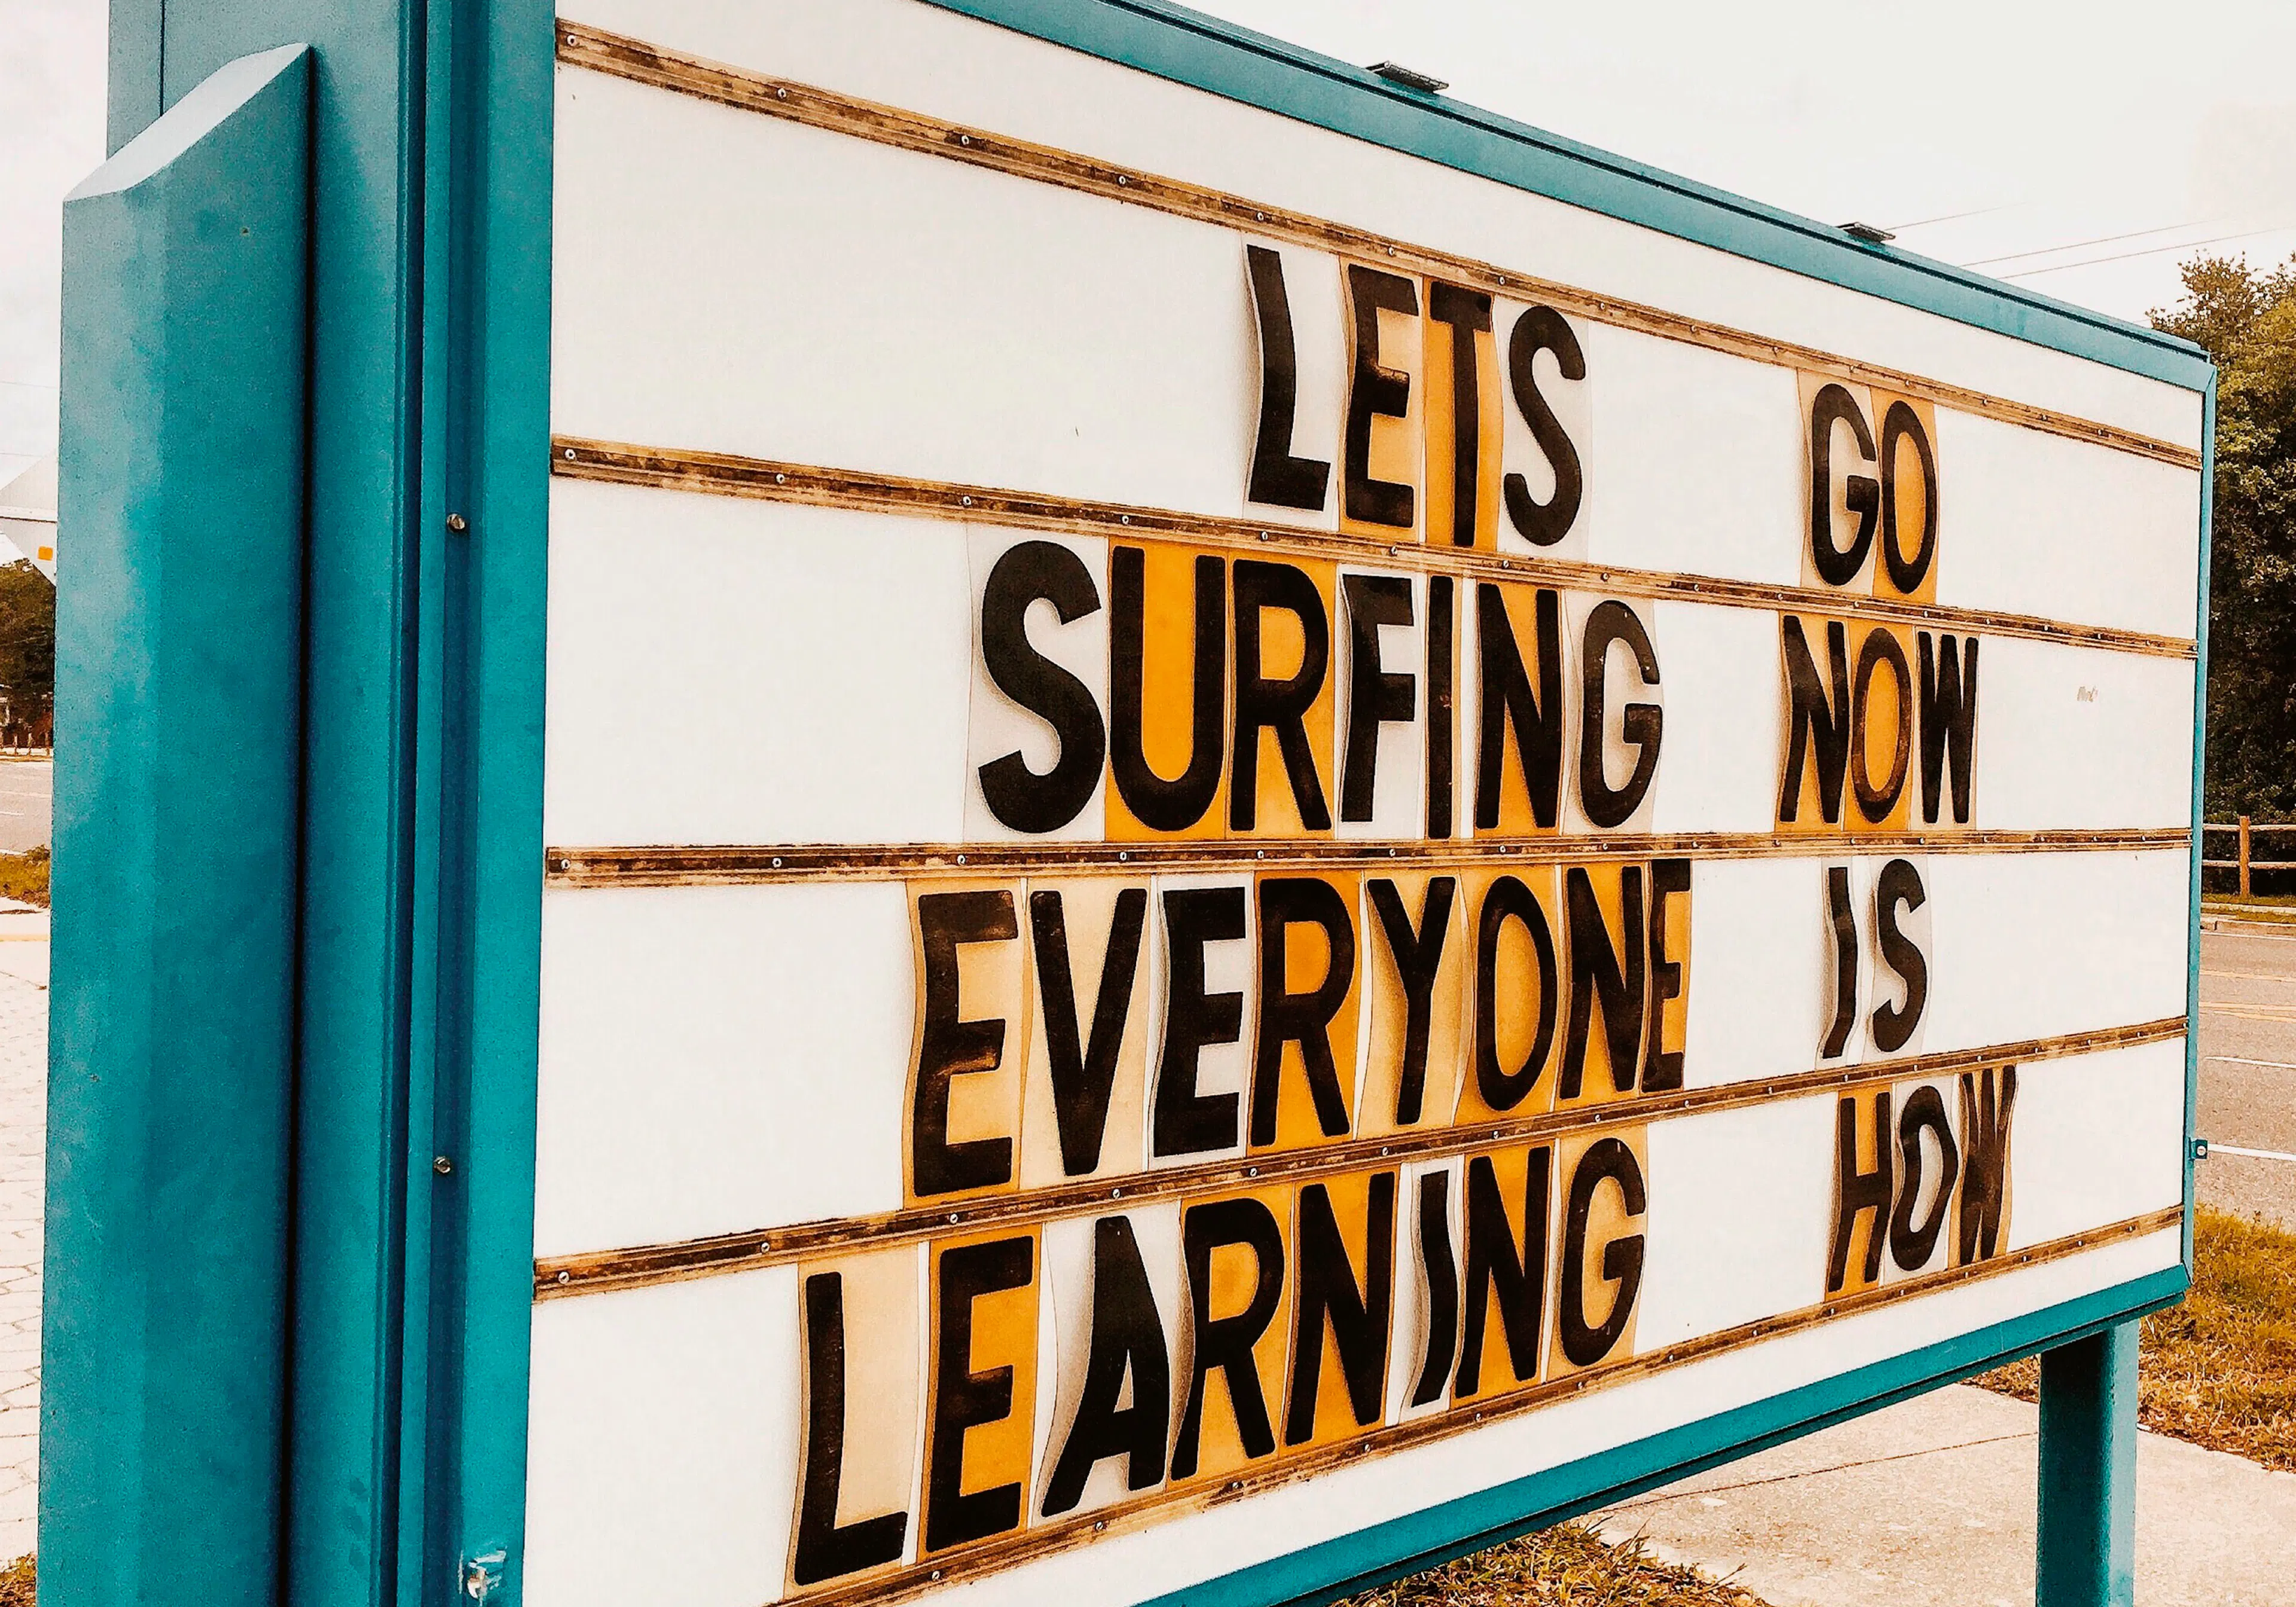 LETS GO
SURFING NOW
EVERYONE IS
LEARNING HOW